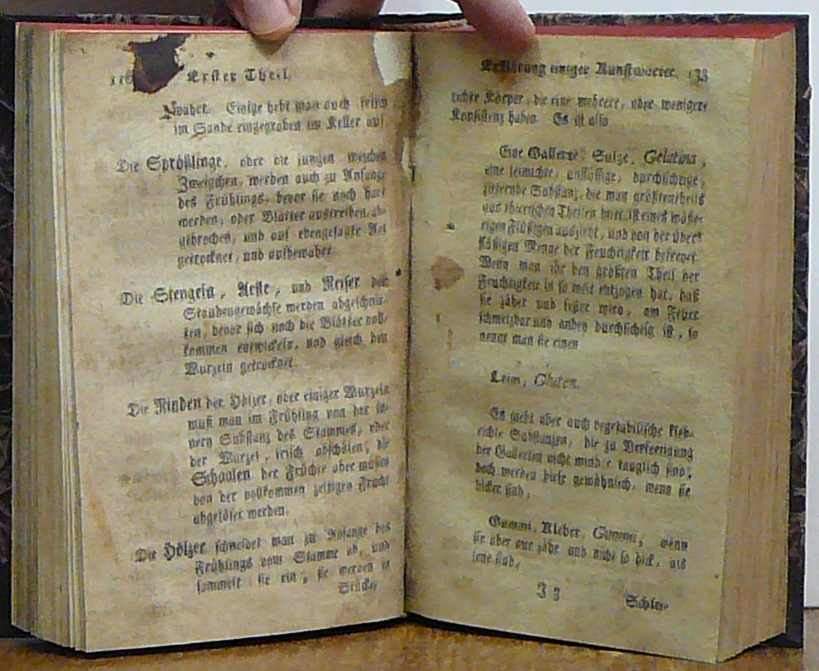 Erster Theil.
wahrt. Einige hebt man auch frisch
im Sande eingegraben im Keller auf.
Die Sprößlinge, oder die jungen weichen
Zweigchen, werden auch zu Anfange
des Frühlings, bevor sie noch hart
werden, oder Blätter austreiben, ab-
gebrochen, und auf ebengesagte Art
getrocknet, und aufbewahrt.
Die Stengeln, Aeste, und Reiser der
Staudengewächse werden abgeschnit-
ten, bevor sich noch die Blätter voll-
kommen entwickeln, und gleich den
Wurzeln getrocknet.
Die Rinden der Hölzer, oder einiger Wurzeln
muß man im Frühling von der in-
nern Substanz des Stammes, oder
der Wurzel, frisch abschälen; die
Schaalen der Früchte aber müssen
von der vollkommen zeitigen Frucht
abgelöset werden.
Die Hölzer schneidet man zu Anfange des
Frühlings vom Stamme ab, und
sammelt sie ein; sie werden in
Stücke,
Erklärung einiger Kunstwörter. 133
richte Körper, die eine mehrere, oder wenigere
Konsistenz haben. Es ist also
Eine Gallerte, Sulze, Gelatina,
eine leimichte, auflößige, durchscheinige,
zitternde Substanz, die man größtentheils
aus thierischen Theilen mittelst eines wäße-
rigen Flüßigen auszieht, und von der über-
flüßigen Menge der Feuchtigkeit befreyet.
Wenn man ihr den größten Theil der
Feuchtigkeit in so weit entzogen hat, daß
sie zäher und fester wird, am Feuer
schmelzbar und anbey durchscheinig ist, so
nennt man sie einen
Leim, Gluten.
Es giebt aber auch vegetabilische kleb-
richte Substanzen, die zu Verfertigung
der Gallerten nicht minder tauglich sind;
doch werden diese gewöhnlich, wenn sie
dicker sind,
Gummi, Kleber, Gummi, wenn
sie aber nur zähe und nicht so dick, als
jene sind,
J 3
Schlei-